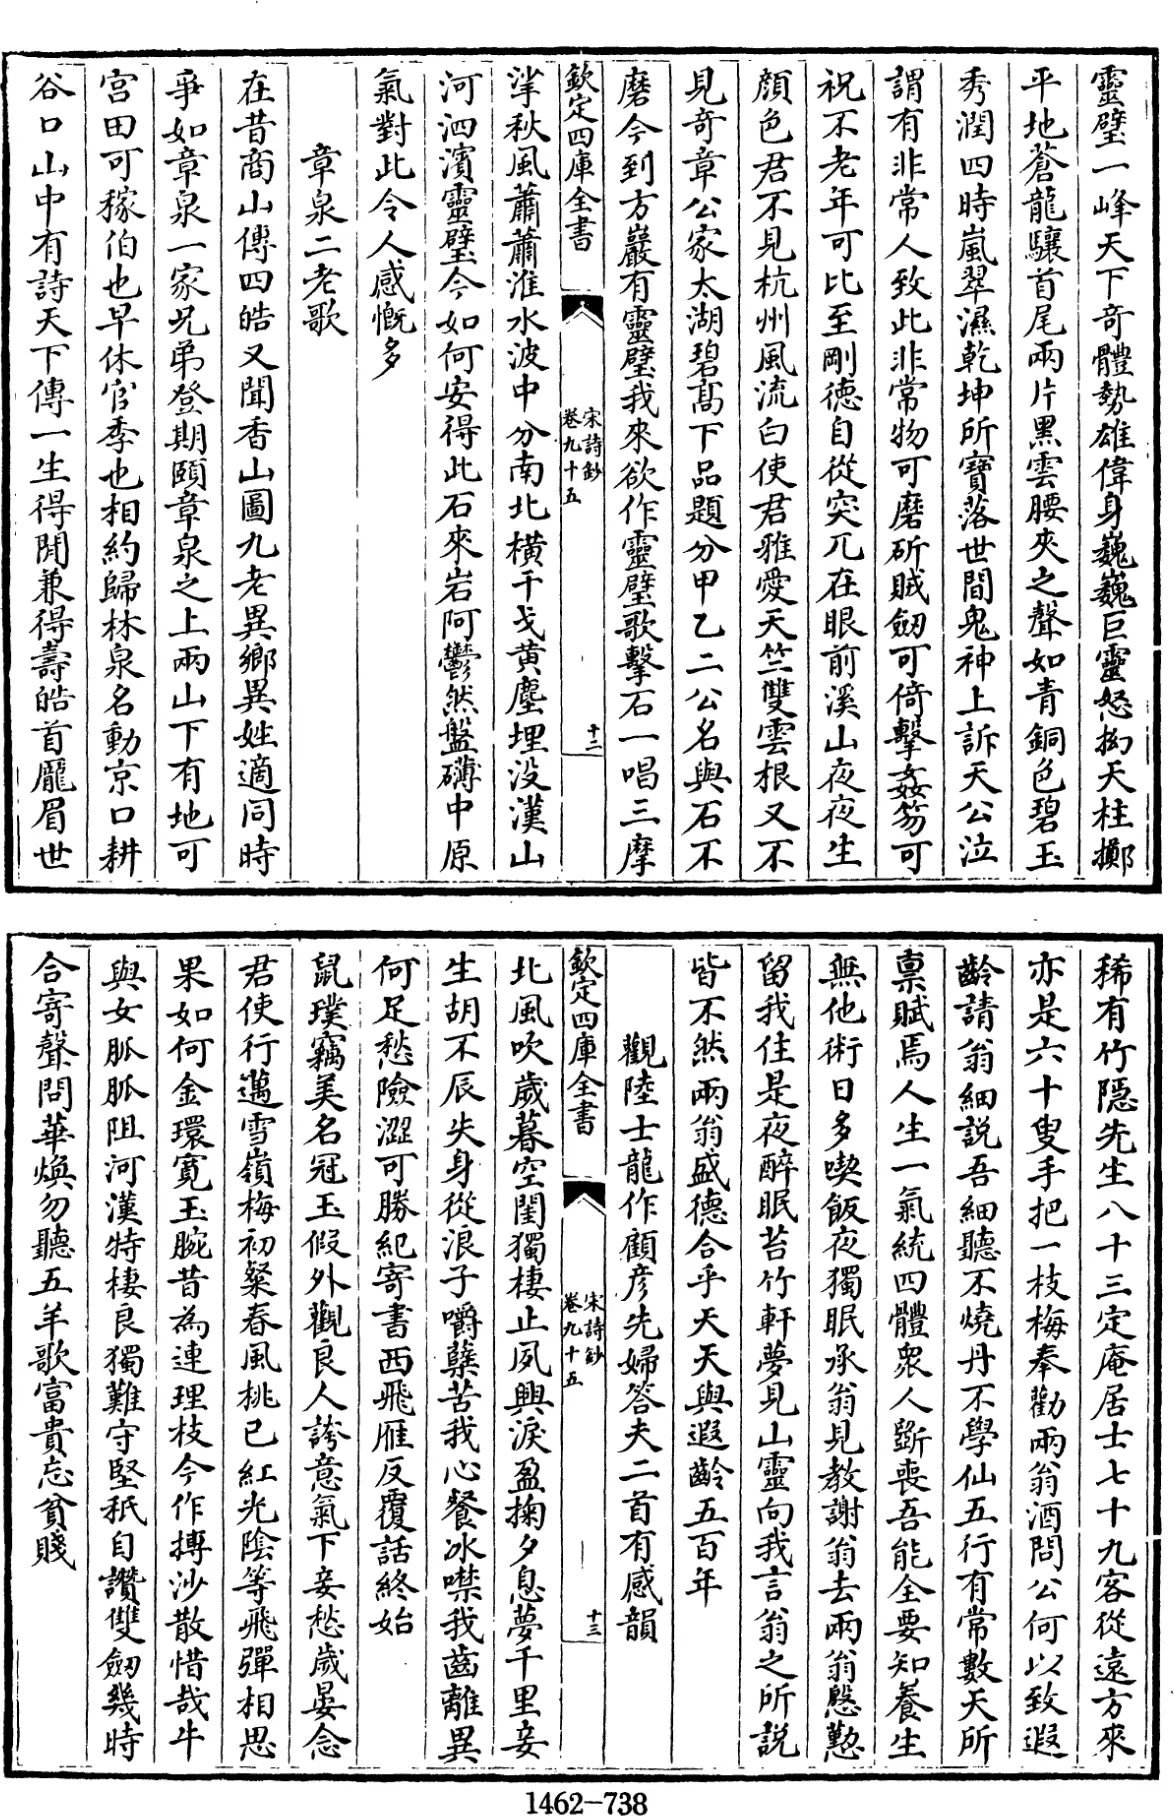 靈璧一峰天下奇體勢雄偉身巍巍巨靈怒拗天柱擲
平地蒼龍驤首尾兩片黑雲腰夾之聲如青銅色碧玉
秀潤四時嵐翠濕乾坤所寶落世間鬼神上訴天公泣
謂有非常人致此非常物可磨斫賊劒可倚擊姦笏可
祝不老年可比至剛德自從突兀在眼前溪山夜夜生
顏色君不見杭州風流白使君雅愛天竺雙雲根又不
見奇章公家太湖碧髙下品題分甲乙二公名與石不
磨今到方巖有靈璧我來欲作靈璧歌擊石一唱三摩
欽定四庫全書
宋詩鈔
卷九十五
十二
挲秋風蕭蕭淮水波中分南北橫干戈黄塵埋没漢山
河泗濱靈璧今如何安得此石來岩阿鬱然盤礴中原
氣對此令人感慨多
章泉二老歌
在昔商山傳四皓又聞香山圖九老異鄉異姓適同時
爭如章泉一家兄弟登期頤章泉之上兩山下有地可
宫田可稼伯也早休官季也相約歸林泉名動京口耕
谷口山中有詩天下傳一生得閒兼得壽皓首龎眉世
稀有竹隠先生八十三定庵居士七十九客從遠方來
亦是六十叟手把一枝梅奉勸兩翁酒問公何以致遐
齡請翁細説吾細聽不燒丹不學仙五行有常數天所
禀賦焉人生一氣統四體衆人斵喪吾能全要知養生
無他術日多喫飯夜獨眠承翁見教謝翁去兩翁慇懃
留我住是夜醉眠苔竹軒夢見山靈向我言翁之所説
皆不然兩翁盛德合乎天天與遐齡五百年
觀陸士龍作顧彦先婦答夫二首有感韻
欽定四庫全書
宋詩鈔
卷九十五
十三
北風吹歲暮空閨獨棲止夙興淚盈掬夕息夢千里妾
生胡不辰失身從浪子嚼蘗苦我心餐冰噤我齒離異
何足愁險澀可勝紀寄書西飛雁反覆話終始
鼠璞竊美名冠玉假外觀良人誇意氣下妾愁歲晏念
君使行邁雪嶺梅初粲春風桃已紅光陰等飛彈相思
果如何金環寛玉腕昔為連理枝今作摶沙散惜哉牛
與女脈脈阻河漢特棲良獨難守堅秖自讚雙劒幾時
合寄聲問華煥勿聽五羊歌富貴忘貧賤
1462-738